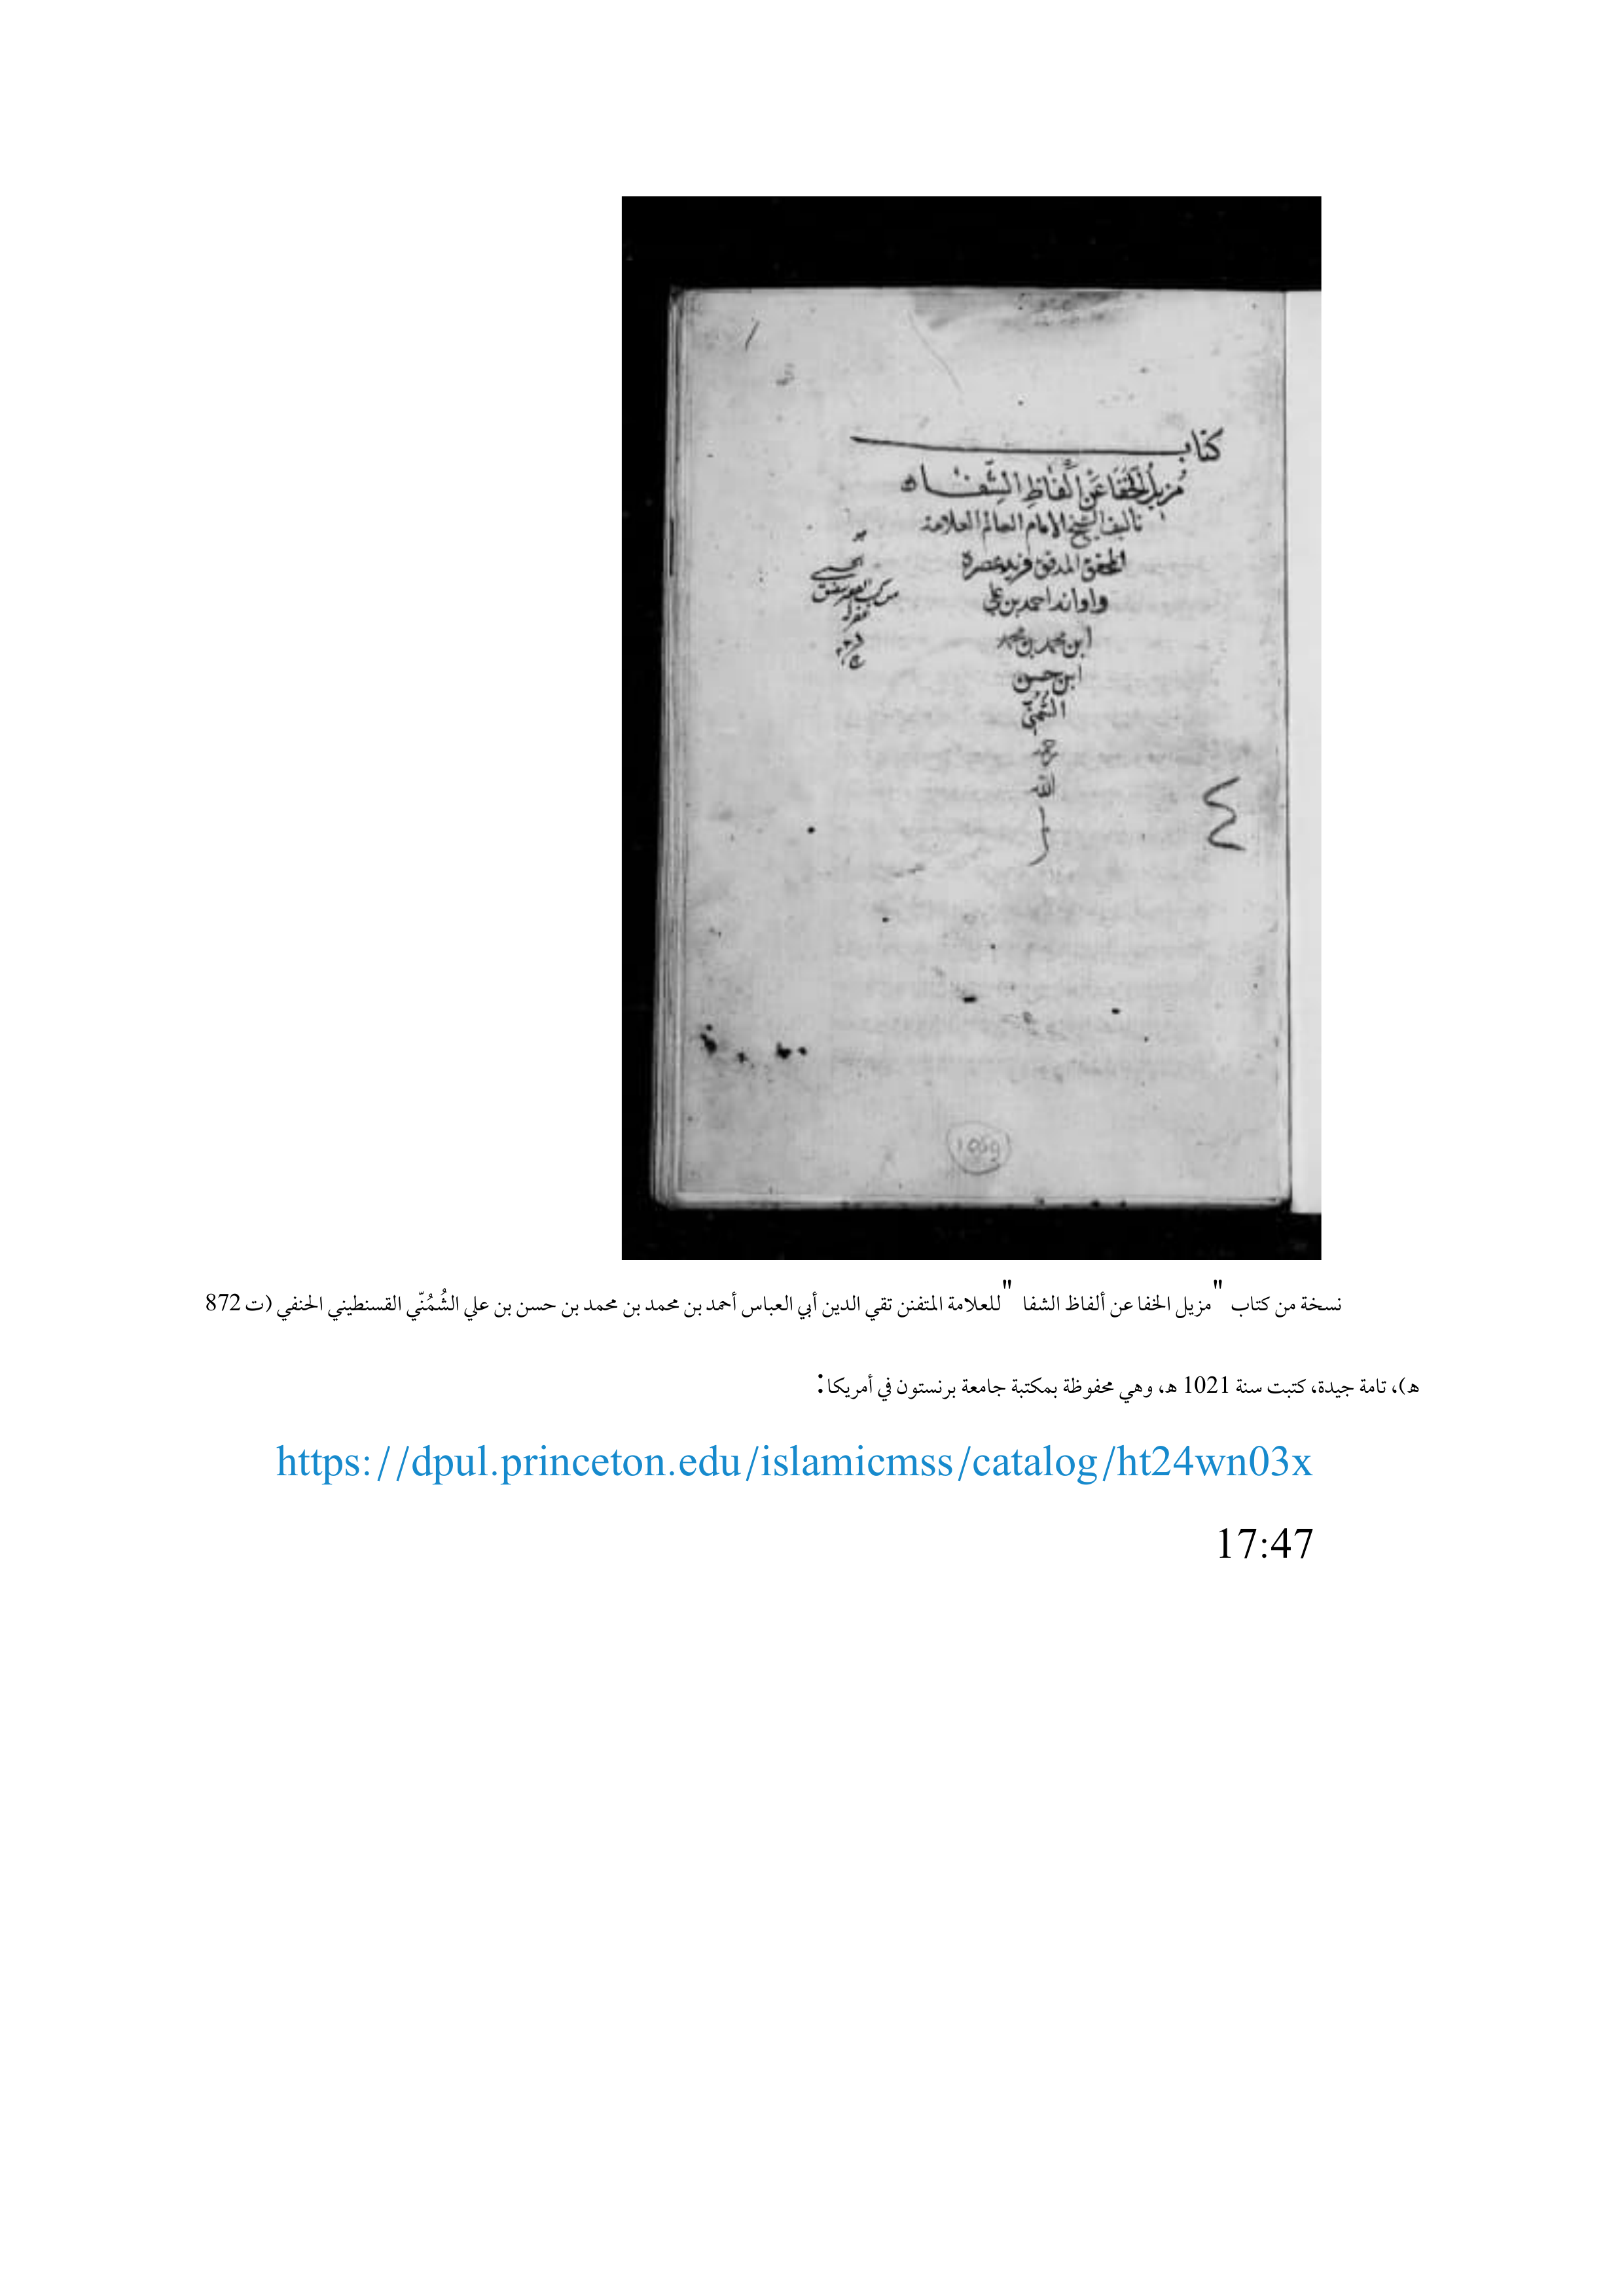 كتاب
مُزِيلُ الخَفَا عَنْ أَلْفَاظِ الشِّفَاه
تاليف الشيخ الامام العالم العلامة
المحقق المدقق فريد عصره
واوانه احمد بن علي
ابن محمد بن محمد
ابن حسن
الشُّمُنِّي
رحمه
الله
٤
1059
نسخة من كتاب "مزيل الخفا عن ألفاظ الشفا" للعلامة المتفنن تقي الدين أبي العباس أحمد بن محمد بن محمد بن حسن بن علي الشُّمُنّي القسنطيني الحنفي (ت 872
هـ)، تامة جيدة، كتبت سنة 1021 هـ، وهي محفوظة بمكتبة جامعة برنستون في أمريكا:
https://dpul.princeton.edu/islamicmss/catalog/ht24wn03x
17:47